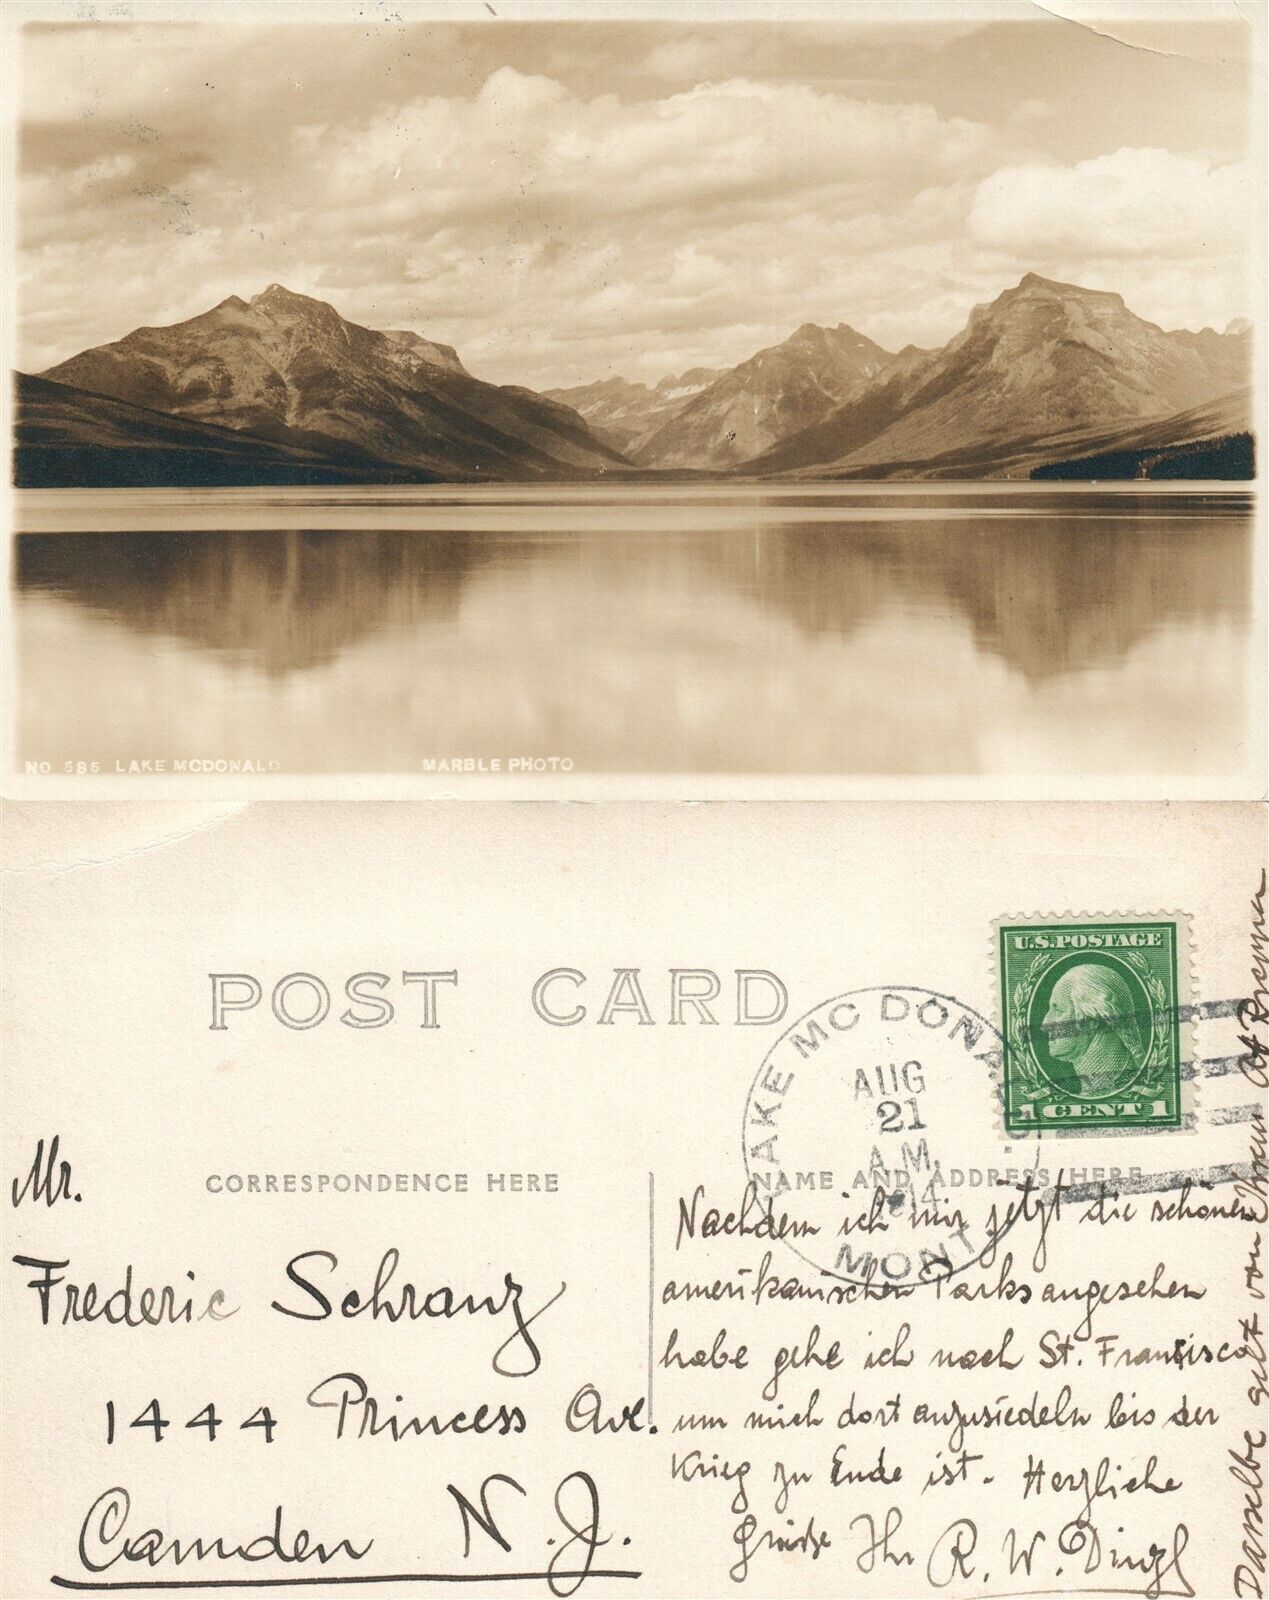 NO 585 LAKE MCDONALD
MARBLE PHOTO
POST CARD
U.S.POSTAGE
1 CENT 1
LAKE MC DONALD
AUG
21
A.M.
1914
MONT.
CORRESPONDENCE HERE
NAME AND ADDRESS HERE
Mr.
Frederic Schranz
1444 Princess Ave.
Camden N.J.
Nachdem ich mir jetzt die schönen
amerikanischen Parks angesehen
habe gehe ich nach St. Franzisco
um mich dort anzusiedeln bis der
Krieg zu Ende ist. Herzliche
Grüße Ihr R. W. Dinzl
Dasselbe gilt von Ihrem